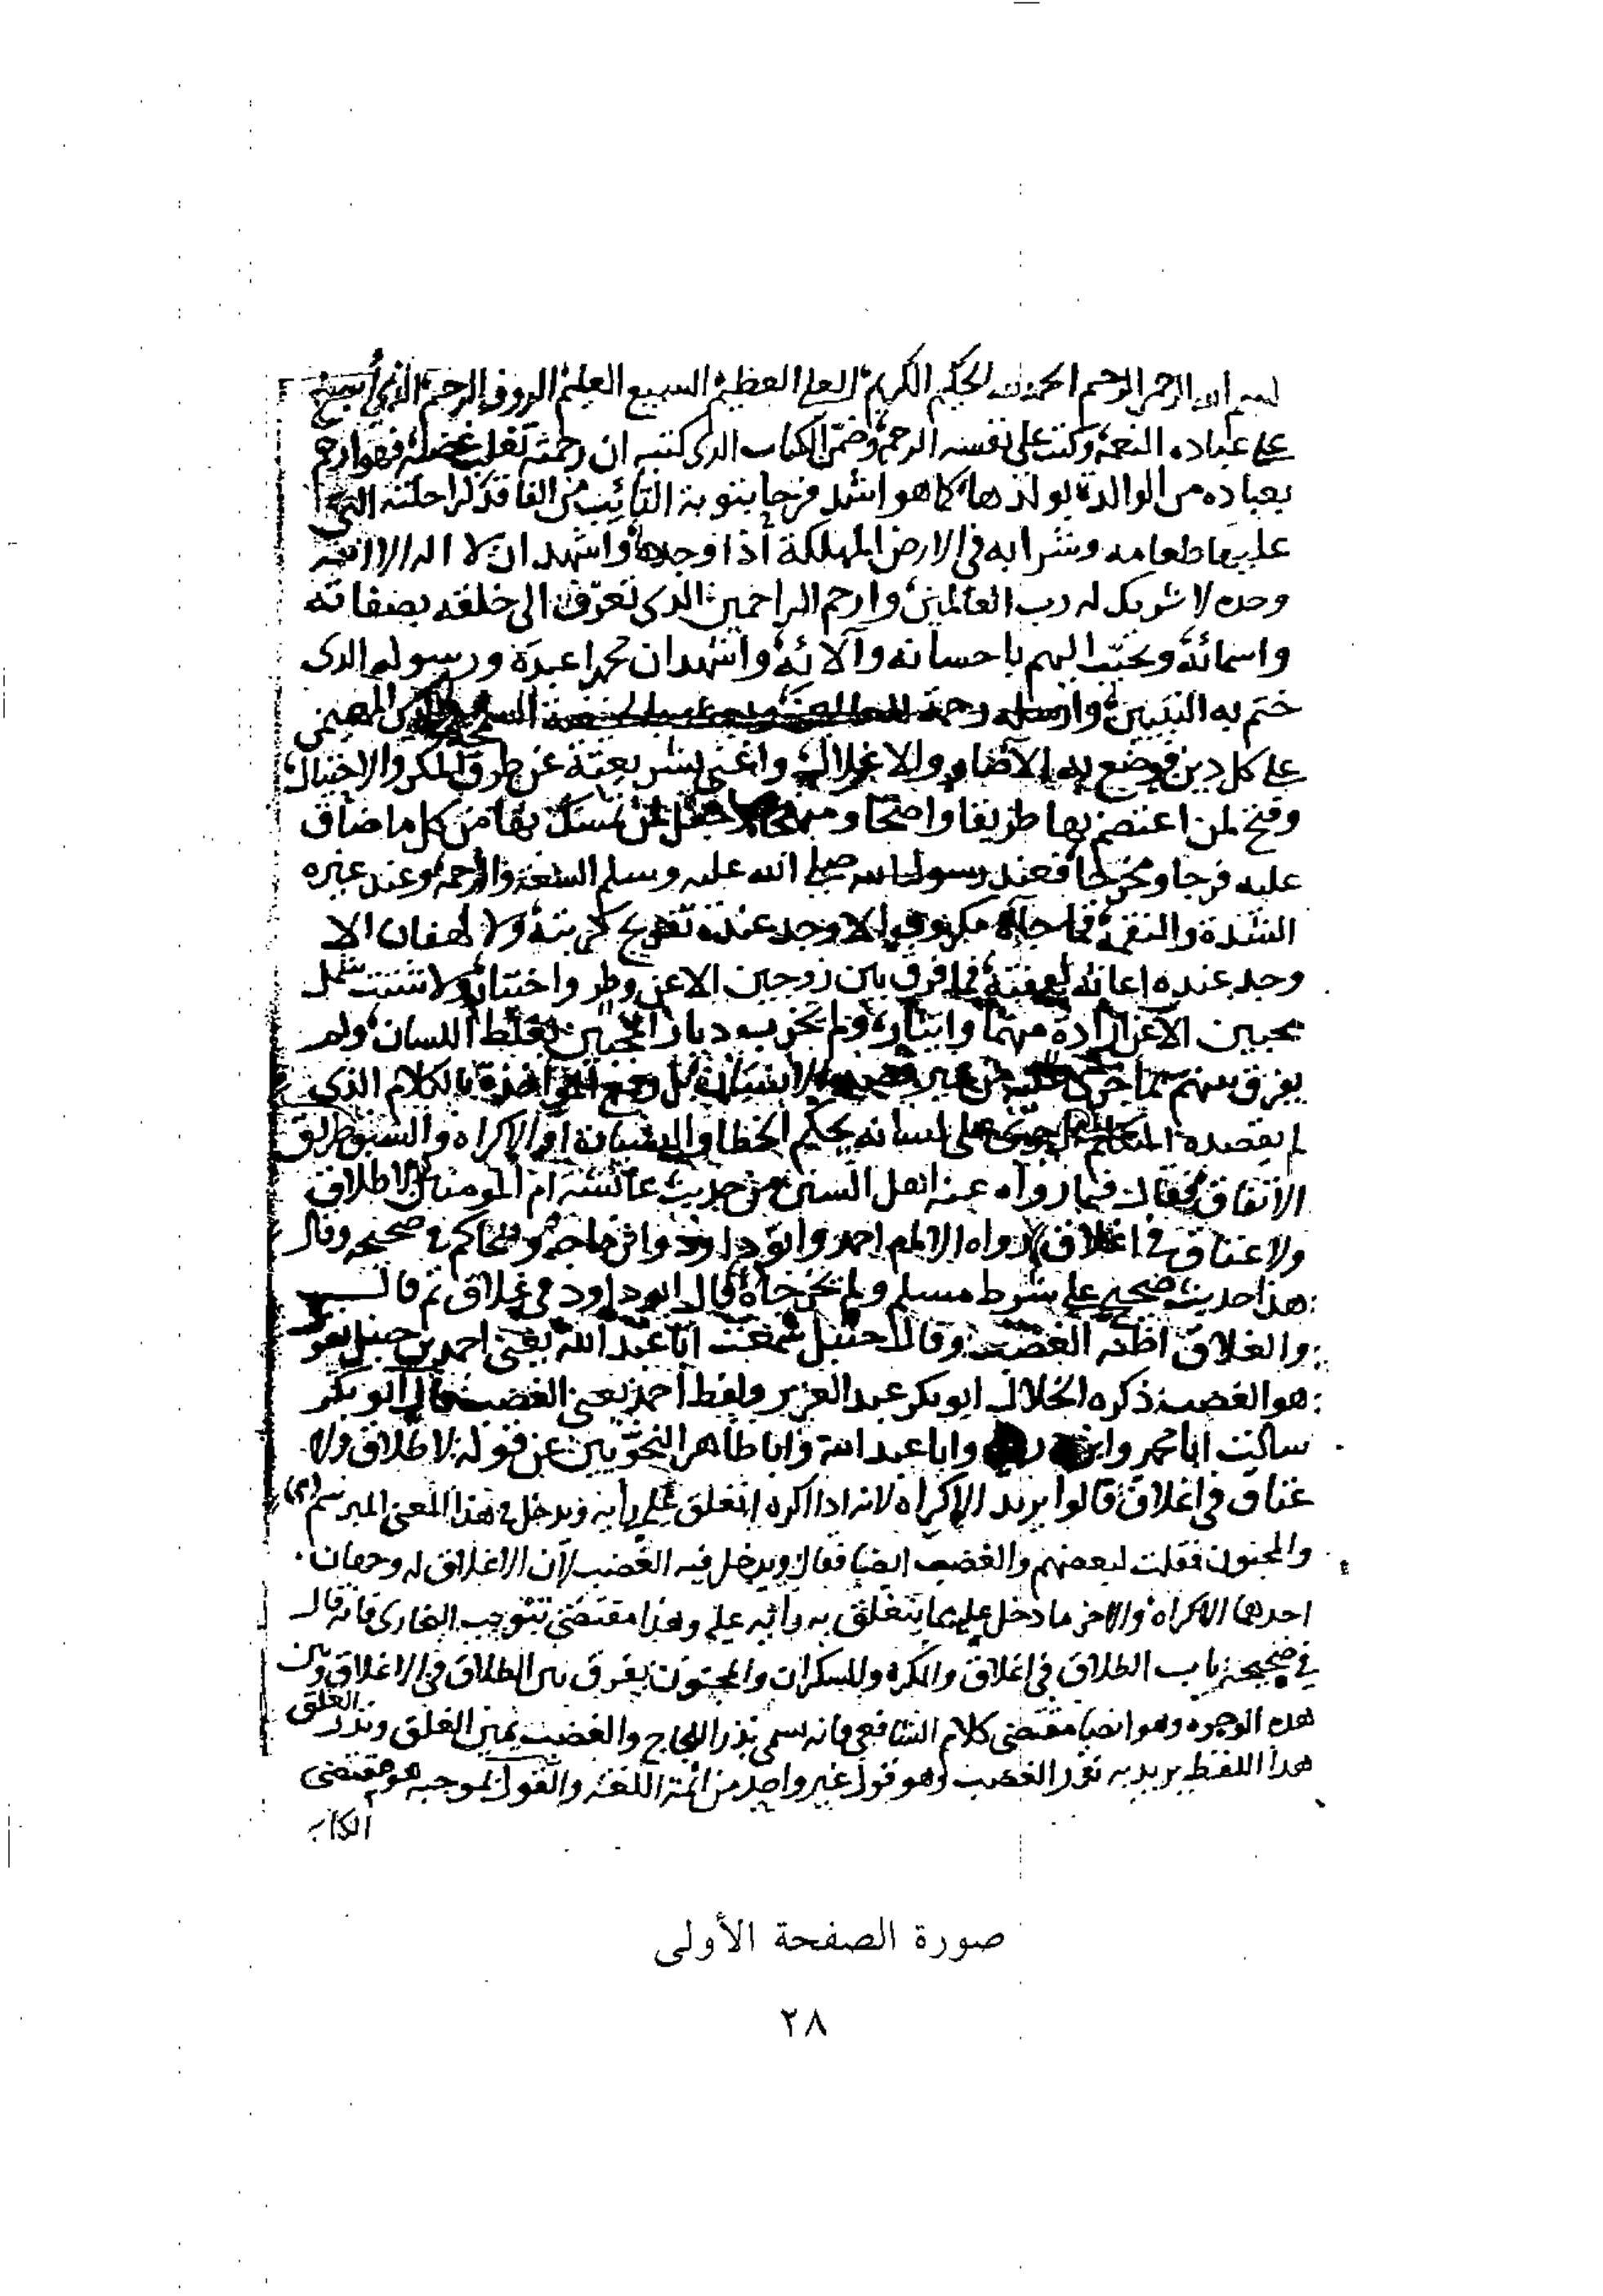 بسم الله الرحمن الرحيم الحمد لله الحكيم الكريم العلي العظيم السميع العليم الروف الرحيم الذي أسبغ
على عباده النعمة وكتب على نفسه الرحمة وضمن الكتاب الذي كتبه ان رحمته تغلب غضبه فهو ارحم
بعباده من الوالدة بولدها كما هو اشد فرحا بتوبة التائب من الفاقد لراحلته التي
عليها طعامه وشرابه في الارض المهلكة اذا وجدها واشهد ان لا اله الا الله
وحده لا شريك له رب العالمين وارحم الراحمين الذي تعرف الى خلقه بصفاته
واسمائه وتحبب اليهم باحسانه وآلائه واشهد ان محمدا عبده ورسوله الذي
ختم به النبيين وارسله رحمة للعالمين المهيمن
على كل دين فوضع به الآصار والاغلال واغنى بشريعته عن طرق المكر والاحتيال
وفتح لمن اعتصم بها طريقا واضحا ومنهاجا وجعل لمن تمسك بها من كل ما ضاق
عليه فرجا ومخرجا فعند رسول الله صلى الله عليه وسلم السعة والرحمة وعند غيره
الشدة والنقمة فما جاءه مكروب الا وجد عنده تفريج كربته ولا لهفان الا
وجد عنده اغاثة لهفته فما فرق بين زوجين الا عن وطر واختيار ولا شتت شمل
محبين الا عن ارادة منهما وايثار ولم يخرب ديار المحبين بغلط اللسان ولم
يفرق بينهم بما جرى عليه من غير قصد الانسان بل رفع المؤاخذة بالكلام الذي
لم يقصده المتكلم بل جرى على لسانه بحكم الخطا والنسيان او الإكراه والسبق طريق
الاتفاق فقال فيما رواه عنه اهل السنن من حديث عائشة ام المومنين لا طلاق
ولا عتاق في اغلاق رواه الامام احمد وابو داود وابن ماجه والحاكم في صحيحه وقال
هذا حديث صحيح على شرط مسلم ولم يخرجاه قال ابو داود في غلاق ثم قال
والغلاق اظنه الغضب وقال حنبل سمعت ابا عبد الله يعني احمد بن حنبل يقول
هو الغضب ذكره الخلال ابو بكر عبد العزيز ولفظ احمد يعني الغضب قال ابو بكر
سالت ابا محمد وابن وابا عبد الله وابا طاهر النحويين عن قوله لا طلاق ولا
عتاق في اغلاق قالوا يريد الإكراه لانه اذا اكره انغلق عليه رأيه ويدخل في هذا المعنى المبرسم
والمجنون فقلت لبعضهم والغضب ايضا فقال ويدخل فيه الغضب لأن الاغلاق له وجهان
احدهما الاكراه والاخر ما دخل عليه مما ينغلق به رأيه عليه وهذا مقتضى تبويب البخاري فانه قال
في صحيحه باب الطلاق في اغلاق والكره والسكران والمجنون يفرق بين الطلاق في الاغلاق وبين
هذه الوجوه وهو ايضا مقتضى كلام الشافعي فانه سمى نذر اللجاج والغضب يمين الغلق ونذر الغلق
هذا اللفظ يريد به نذر الغضب وهو قول غير واحد من ائمة اللغة والقول بموجبه هو مقتضى
الكتاب
صورة الصفحة الأولى
٢٨